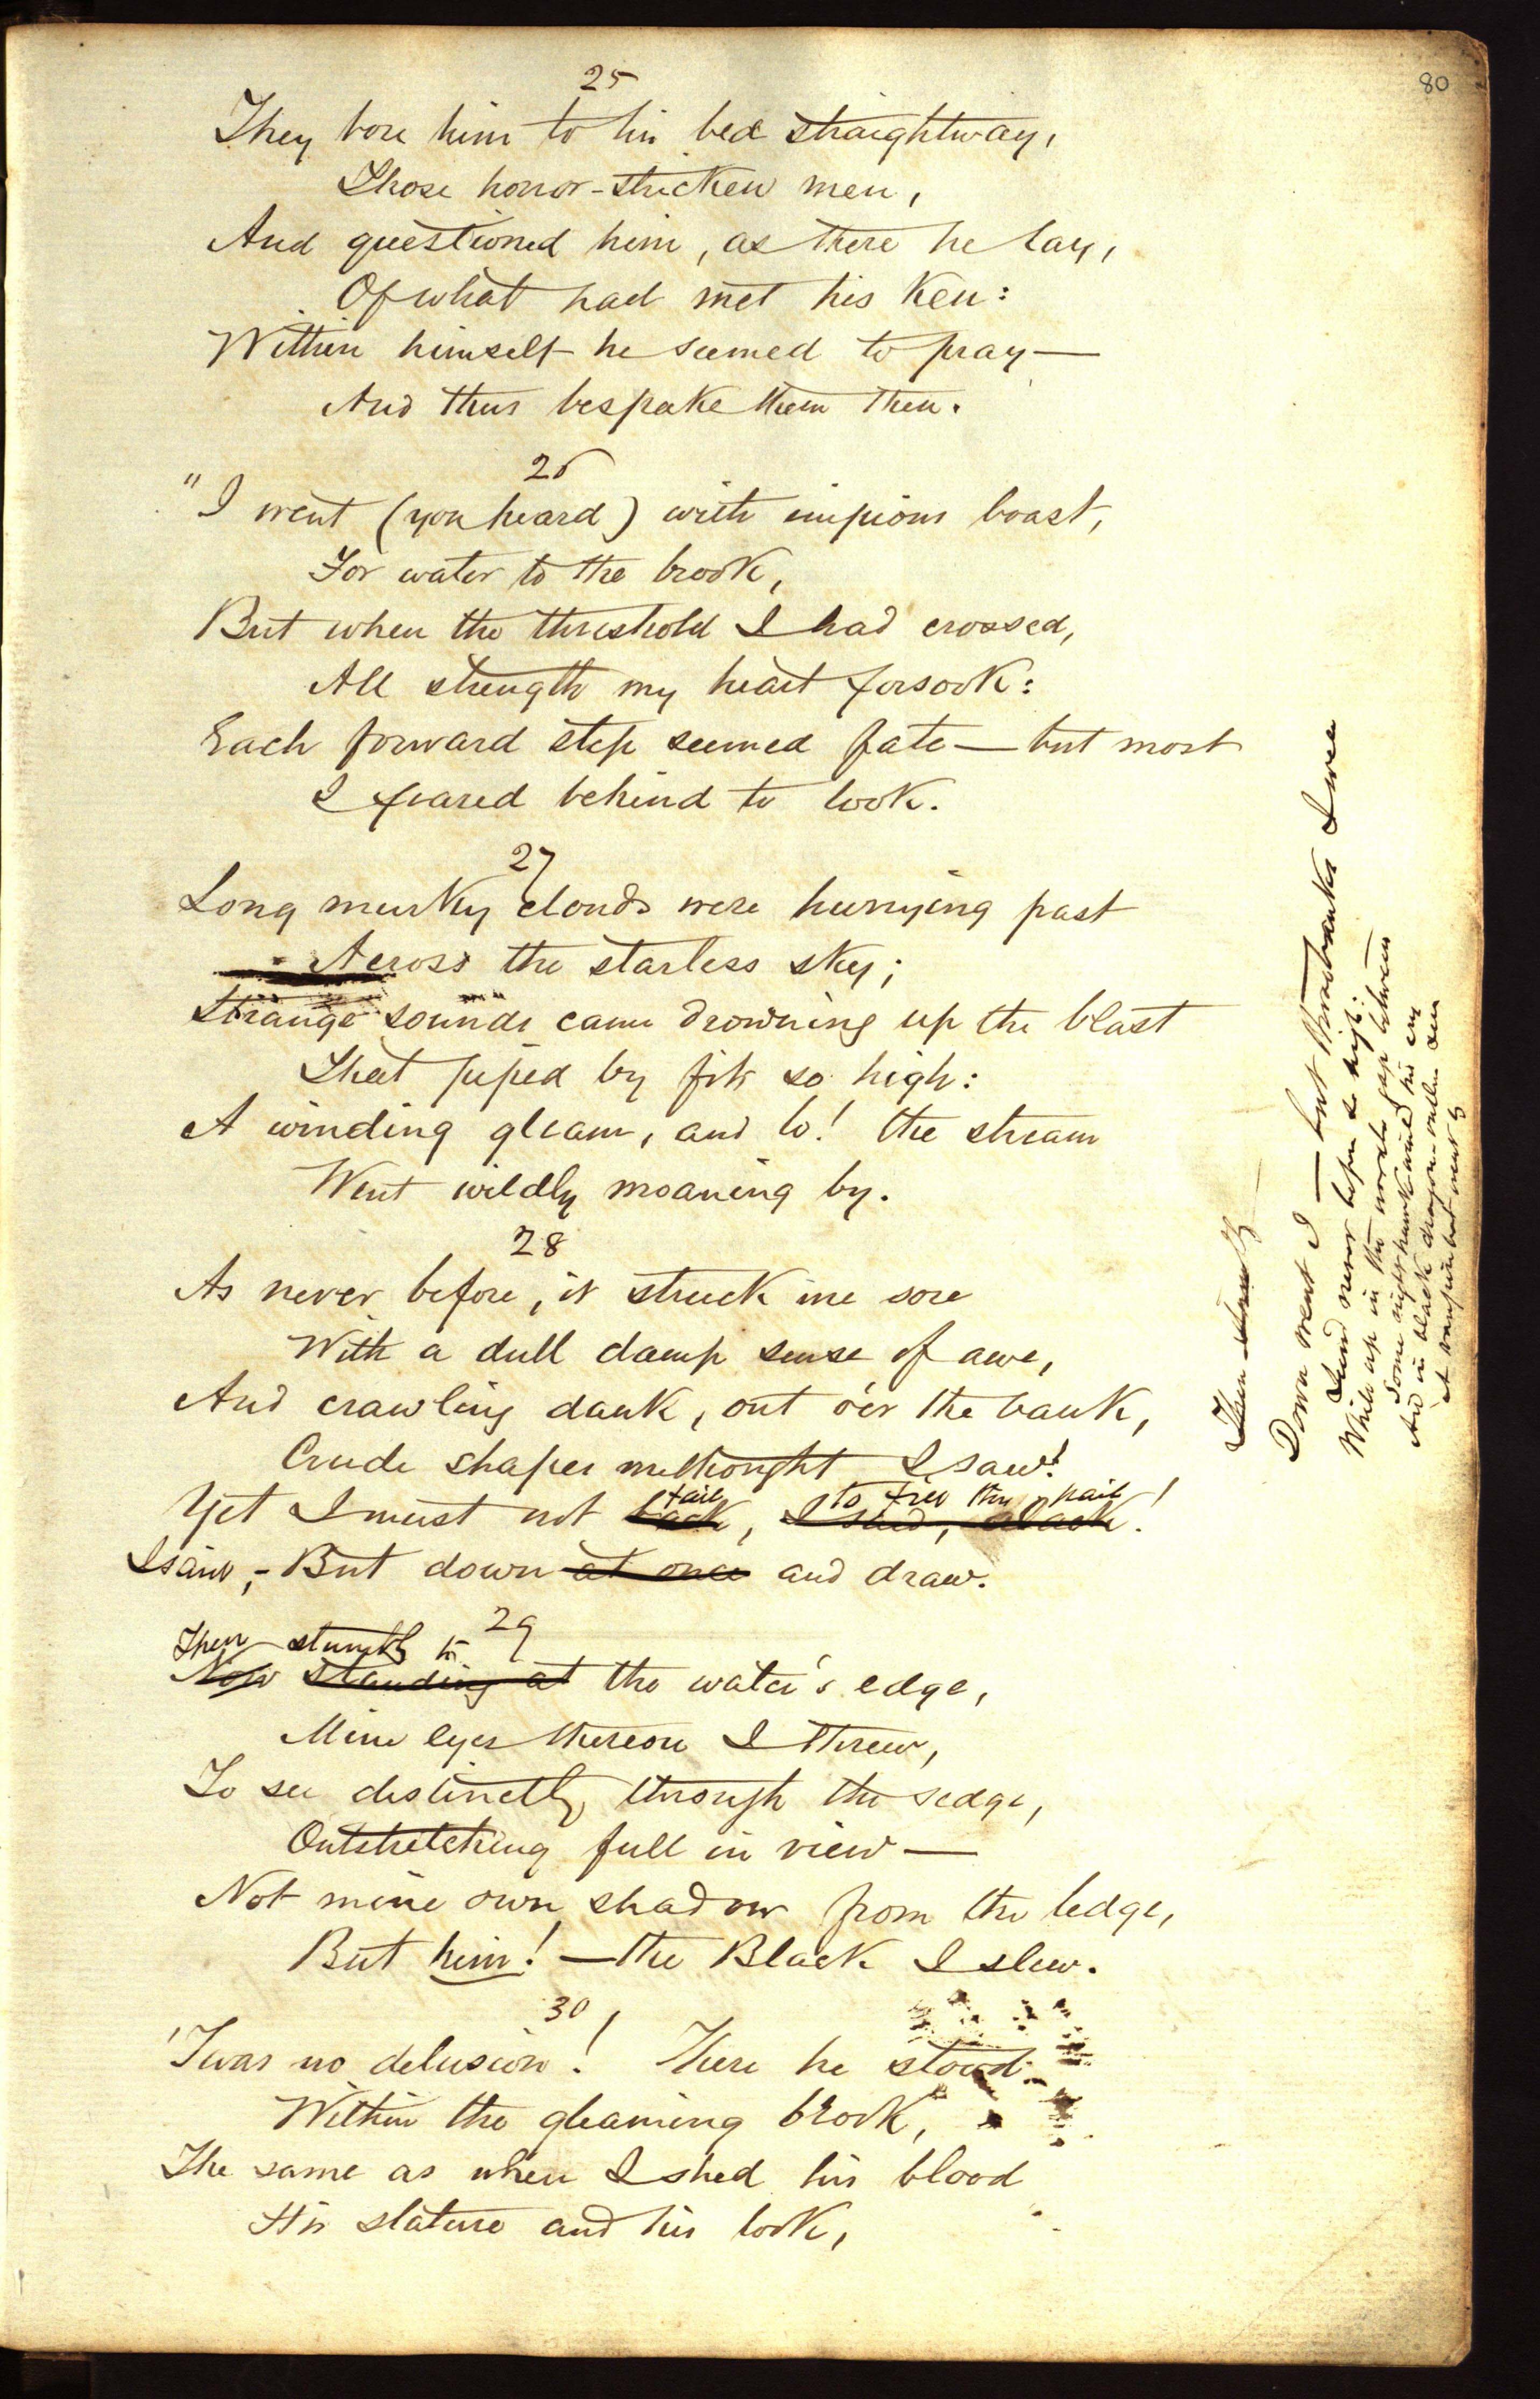 80
25
They bore him to his bed straightway,
Those horror-stricken men,
And questioned him, as there he lay,
Of what had met his ken:
Within himself he seemed to pray—
And thus bespake them then.
26
"I went (you heard) with impious boast,
For water to the brook,
But when the threshold I had crossed,
All strength my heart forsook:
Each forward step seemed fate—but most
I feared behind to look.
27
Long murky clouds were hurrying past
Across the starless sky;
Strange sounds came drowning up the blast
That piped by fits so high:
A winding gleam, and lo! the stream
Went wildly moaning by.
28
As never before, it struck me sore
With a dull damp sense of awe,
And crawling dank, out o'er the bank,
Crude shapes methought I saw!
fail to free the pail!
Yet I must not back, I said, alack!
I said,- But down at once and draw.
29
Then strength to
Now standing at the water's edge,
Mine eyes thereon I threw,
To see distinctly through the sedge,
Outstretching full in view—
Not mine own shadow from the ledge,
But him!—the Black I slew.
30
'Twas no delusion! There he stood
Within the gleaming brook,
The same as when I shed his blood
His stature and his look,
Then
Down went I — but the banks I
never before so high:
While up in the gap between
Some night hawk his cry
And in black dragon
A vampire bat went by